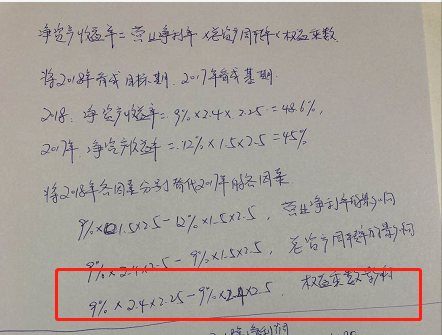 净资产收益率=营业净利率×总资产周转率×权益乘数
将2018年看成目标期,2017年看成基期
2018:净资产收益率=9%×2.4×2.25=48.6%,
2017年 净资产收益率=12%×1.5×2.5=45%
将2018年各因素分别替代2017年的各因素
9%×1.5×2.5-12%×1.5×2.5,营业净利率的影响
9%×2.4×2.5-9%×1.5×2.5,总资产周转率的影响
9%×2.4×2.25-9%×2.4×2.5,权益乘数影响